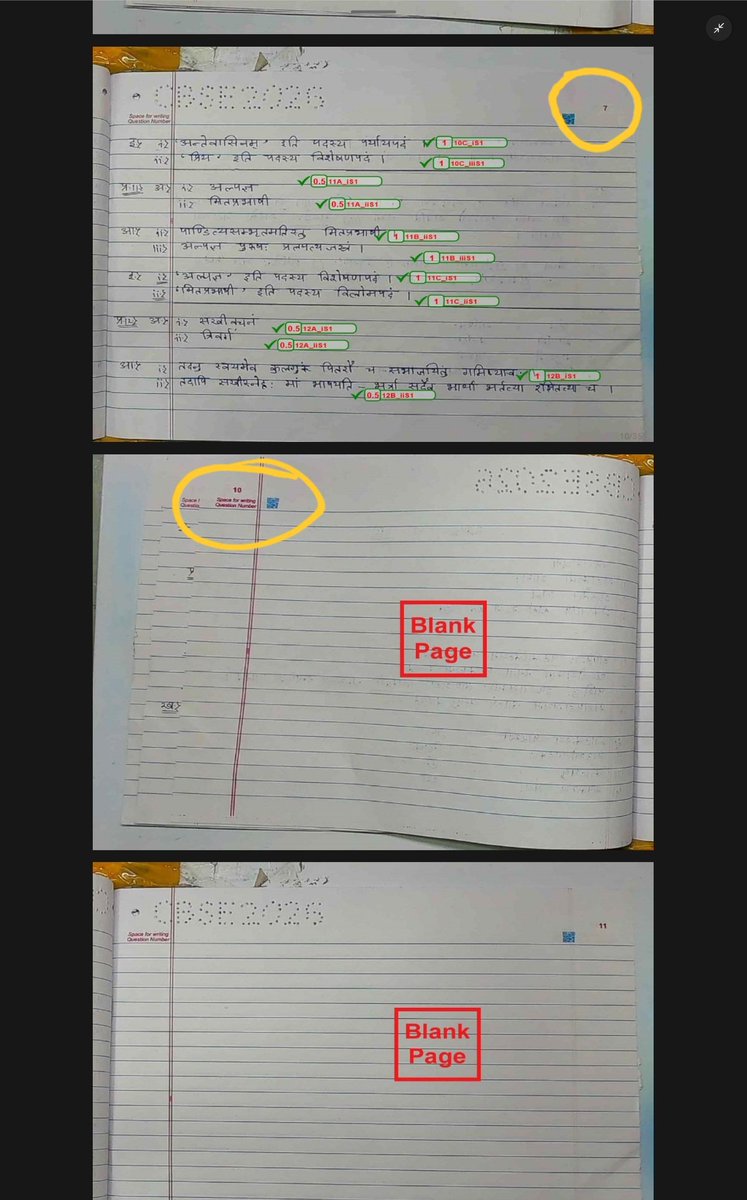 CBSE2026
7
Space for writing
Question Number
इ> i> 'अन्तेवासिनम्' इति पदस्य पर्यायपदं ✓ 1 10C_iS1
ii> 'प्रिय' इति पदस्य विशेषणपदं । ✓ 1 10C_iiiS1
प्र11> अ> i> अल्पज्ञ ✓ 0.5 11A_iS1
ii> मितप्रभाषी ✓ 0.5 11A_iiS1
आ> ii> मितप्रभाषी ✓ 1 11B_iiS1
iii> अल्पज्ञ पुरुषः ✓ 1 11B_iiiS1
इ> i> 'अल्पज्ञ' इति पदस्य विशेषणपदं । ✓ 1 11C_iS1
ii> 'मितप्रभाषी' इति पदस्य विलोमपदं । ✓ 1 11C_iiS1
प्र12> अ> i> सखीवचनं ✓ 0.5 12A_iS1
ii> ✓ 0.5 12A_iiS1
आ> i> स्वयमेव पितरौ च गमिष्याव ✓ 1 12B_iS1
ii> तदापि मां सदैव च । ✓ 0.5 12B_iiS1
10/35
10
Space for writing
Question Number
CBSE2026
Blank
Page
CBSE2026
11
Space for writing
Question Number
Blank
Page